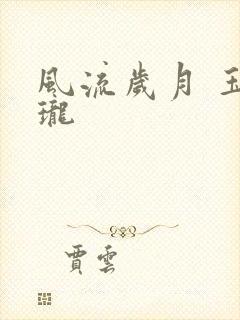 風流歲月 玉
瓏
賈雲